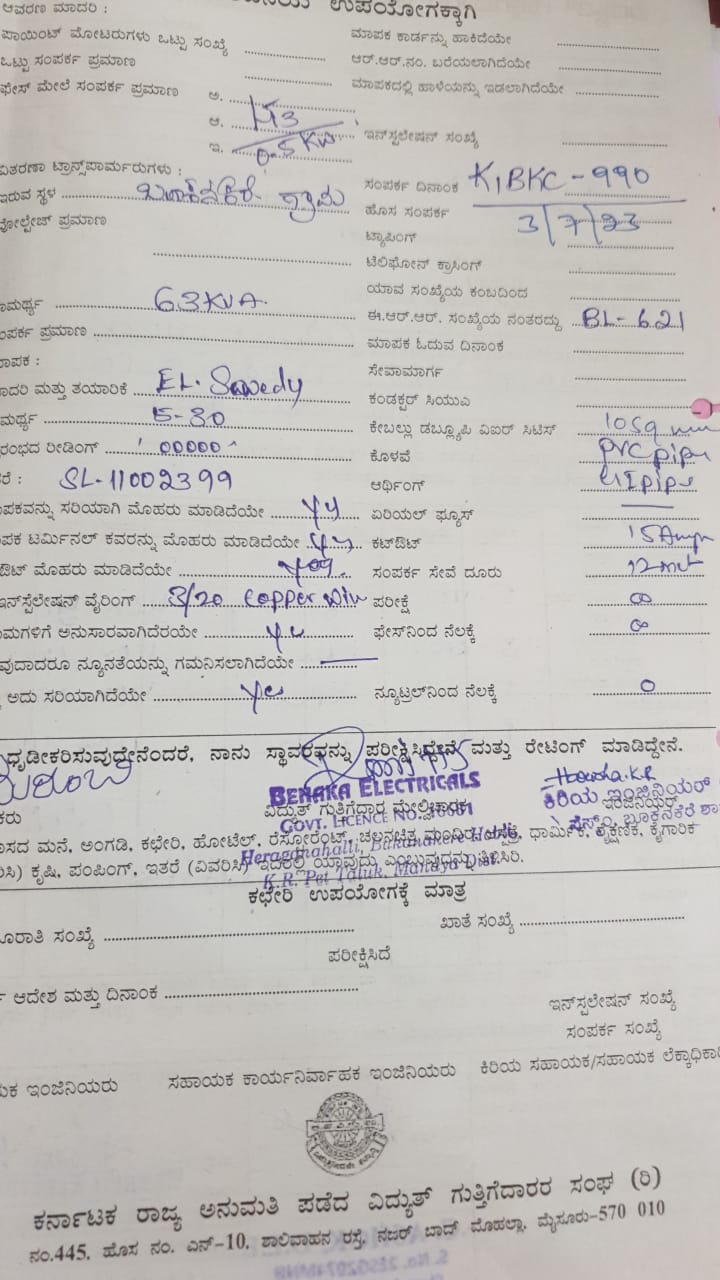 ಆವರಣ ಮಾದರಿ : ಉಪಯೋಗಕ್ಕಾಗಿ
ಪಾಯಿಂಟ್ ಮೋಟರುಗಳು ಒಟ್ಟು ಸಂಖ್ಯೆ ಮಾಪಕ ಕಾರ್ಡನ್ನು ಹಾಕಿದೆಯೇ
ಒಟ್ಟು ಸಂಪರ್ಕ ಪ್ರಮಾಣ ಆರ್.ಆರ್.ನಂ. ಬರೆಯಲಾಗಿದೆಯೇ
ಫೇಸ್ ಮೇಲೆ ಸಂಪರ್ಕ ಪ್ರಮಾಣ ಅ. ಮಾಪಕದಲ್ಲಿ ಹಾಳೆಯನ್ನು ಇಡಲಾಗಿದೆಯೇ
ಆ.
ಇ. 0-5 KW ಇನ್ಸ್ಟಲೇಷನ್ ಸಂಖ್ಯೆ
ವಿತರಣಾ ಟ್ರಾನ್ಸ್‌ಪಾರ್ಮರುಗಳು :
ಇರುವ ಸ್ಥಳ ಗ್ರಾಮ ಸಂಪರ್ಕ ದಿನಾಂಕ K1BKC-990
ವೋಲ್ಟೇಜ್ ಪ್ರಮಾಣ ಹೊಸ ಸಂಪರ್ಕ 3/7/23
ಟ್ಯಾಪಿಂಗ್
ಟೆಲಿಫೋನ್ ಕ್ರಾಸಿಂಗ್
ಯಾವ ಸಂಖ್ಯೆಯ ಕಂಬದಿಂದ
ಾಮರ್ಥ್ಯ 63KVA ಈ.ಆರ್.ಆರ್. ಸಂಖ್ಯೆಯ ನಂತರದ್ದು BL-621
ಂಪರ್ಕ ಪ್ರಮಾಣ ಮಾಪಕ ಓದುವ ದಿನಾಂಕ
ಾಪಕ : ಸೇವಾಮಾರ್ಗ
ಾದರಿ ಮತ್ತು ತಯಾರಿಕೆ EL. Sewedy ಕಂಡಕ್ಟರ್ ಸಿಯುಎ
ಮರ್ಥ್ಯ 5-30 ಕೇಬಲ್ಲು ಡಬ್ಲ್ಯೂಪಿ ವಿಐರ್ ಸಿಟಿಸ್ 10sq mm
ರಂಭದ ರೀಡಿಂಗ್ '00000' ಕೊಳವೆ PVC pipe
ರೆ : SL-11002399 ಆರ್ಥಿಂಗ್ GI pipe
ಪಕವನ್ನು ಸರಿಯಾಗಿ ಮೊಹರು ಮಾಡಿದೆಯೇ ಏರಿಯಲ್ ಫ್ಯೂಸ್
ಪಕ ಟರ್ಮಿನಲ್ ಕವರನ್ನು ಮೊಹರು ಮಾಡಿದೆಯೇ ಕಟ್‌ಔಟ್ 15 Amp
ಔಟ್ ಮೊಹರು ಮಾಡಿದೆಯೇ Yes ಸಂಪರ್ಕ ಸೇವೆ ದೂರು 12 met
ಇನ್ಸ್ಟಲೇಷನ್ ವೈರಿಂಗ್ 3/20 copper wire ಪರೀಕ್ಷೆ ∞
ಮಗಳಿಗೆ ಅನುಸಾರವಾಗಿದೆರಯೇ Yes ಫೇಸ್‌ನಿಂದ ನೆಲಕ್ಕೆ ∞
ವುದಾದರೂ ನ್ಯೂನತೆಯನ್ನು ಗಮನಿಸಲಾಗಿದೆಯೇ
ಅದು ಸರಿಯಾಗಿದೆಯೇ Yes ನ್ಯೂಟ್ರಲ್‌ನಿಂದ ನೆಲಕ್ಕೆ 0
ಧೃಡೀಕರಿಸುವುದೇನೆಂದರೆ, ನಾನು ಸ್ಥಾವರವನ್ನು ಪರೀಕ್ಷಿಸಿದ್ದೇನೆ ಮತ್ತು ರೇಟಿಂಗ್ ಮಾಡಿದ್ದೇನೆ.
BENAKA ELECTRICALS
ವಿದ್ಯುತ್ ಗುತ್ತಿಗೆದಾರ ಮೇಲ್ವಿಚಾರಕ ಕಿರಿಯ ಇಂಜಿನಿಯರ್
ಕರು GOVT. LICENCE NO.
ಸದ ಮನೆ, ಅಂಗಡಿ, ಕಛೇರಿ, ಹೋಟೆಲ್, ರೆಸ್ಟೋರೆಂಟ್, ಚಲನಚಿತ್ರ ಮಂದಿರ, ಆಸ್ಪತ್ರೆ, ಧಾರ್ಮಿಕ, ಶೈಕ್ಷಣಿಕ, ಕೈಗಾರಿಕ
Bukanakere Hobli,
ರಿಸಿ) ಕೃಷಿ, ಪಂಪಿಂಗ್, ಇತರೆ (ವಿವರಿಸಿ) ಇದರಲ್ಲಿ ಯಾವುದು ಎಂಬುವುದನ್ನು ತಿಳಿಸಿರಿ.
K.R. Pet Taluk, Mandya Dist.
ಕಛೇರಿ ಉಪಯೋಗಕ್ಕೆ ಮಾತ್ರ
ೂರಾತಿ ಸಂಖ್ಯೆ ಖಾತೆ ಸಂಖ್ಯೆ
ಪರೀಕ್ಷಿಸಿದೆ
ಆದೇಶ ಮತ್ತು ದಿನಾಂಕ
ಇನ್ಸ್ಪಲೇಷನ್ ಸಂಖ್ಯೆ
ಸಂಪರ್ಕ ಸಂಖ್ಯೆ
ಯಕ ಇಂಜಿನಿಯರು ಸಹಾಯಕ ಕಾರ್ಯನಿರ್ವಾಹಕ ಇಂಜಿನಿಯರು ಕಿರಿಯ ಸಹಾಯಕ/ಸಹಾಯಕ ಲೆಕ್ಕಾಧಿಕಾರಿ
ಕರ್ನಾಟಕ ರಾಜ್ಯ ಅನುಮತಿ ಪಡೆದ ವಿದ್ಯುತ್ ಗುತ್ತಿಗೆದಾರರ ಸಂಘ (ರಿ)
ನಂ.445, ಹೊಸ ನಂ. ಎನ್-10, ಶಾಲಿವಾಹನ ರಸ್ತೆ, ನಜರ್ ಬಾದ್ ಮೊಹಲ್ಲಾ, ಮೈಸೂರು-570 010